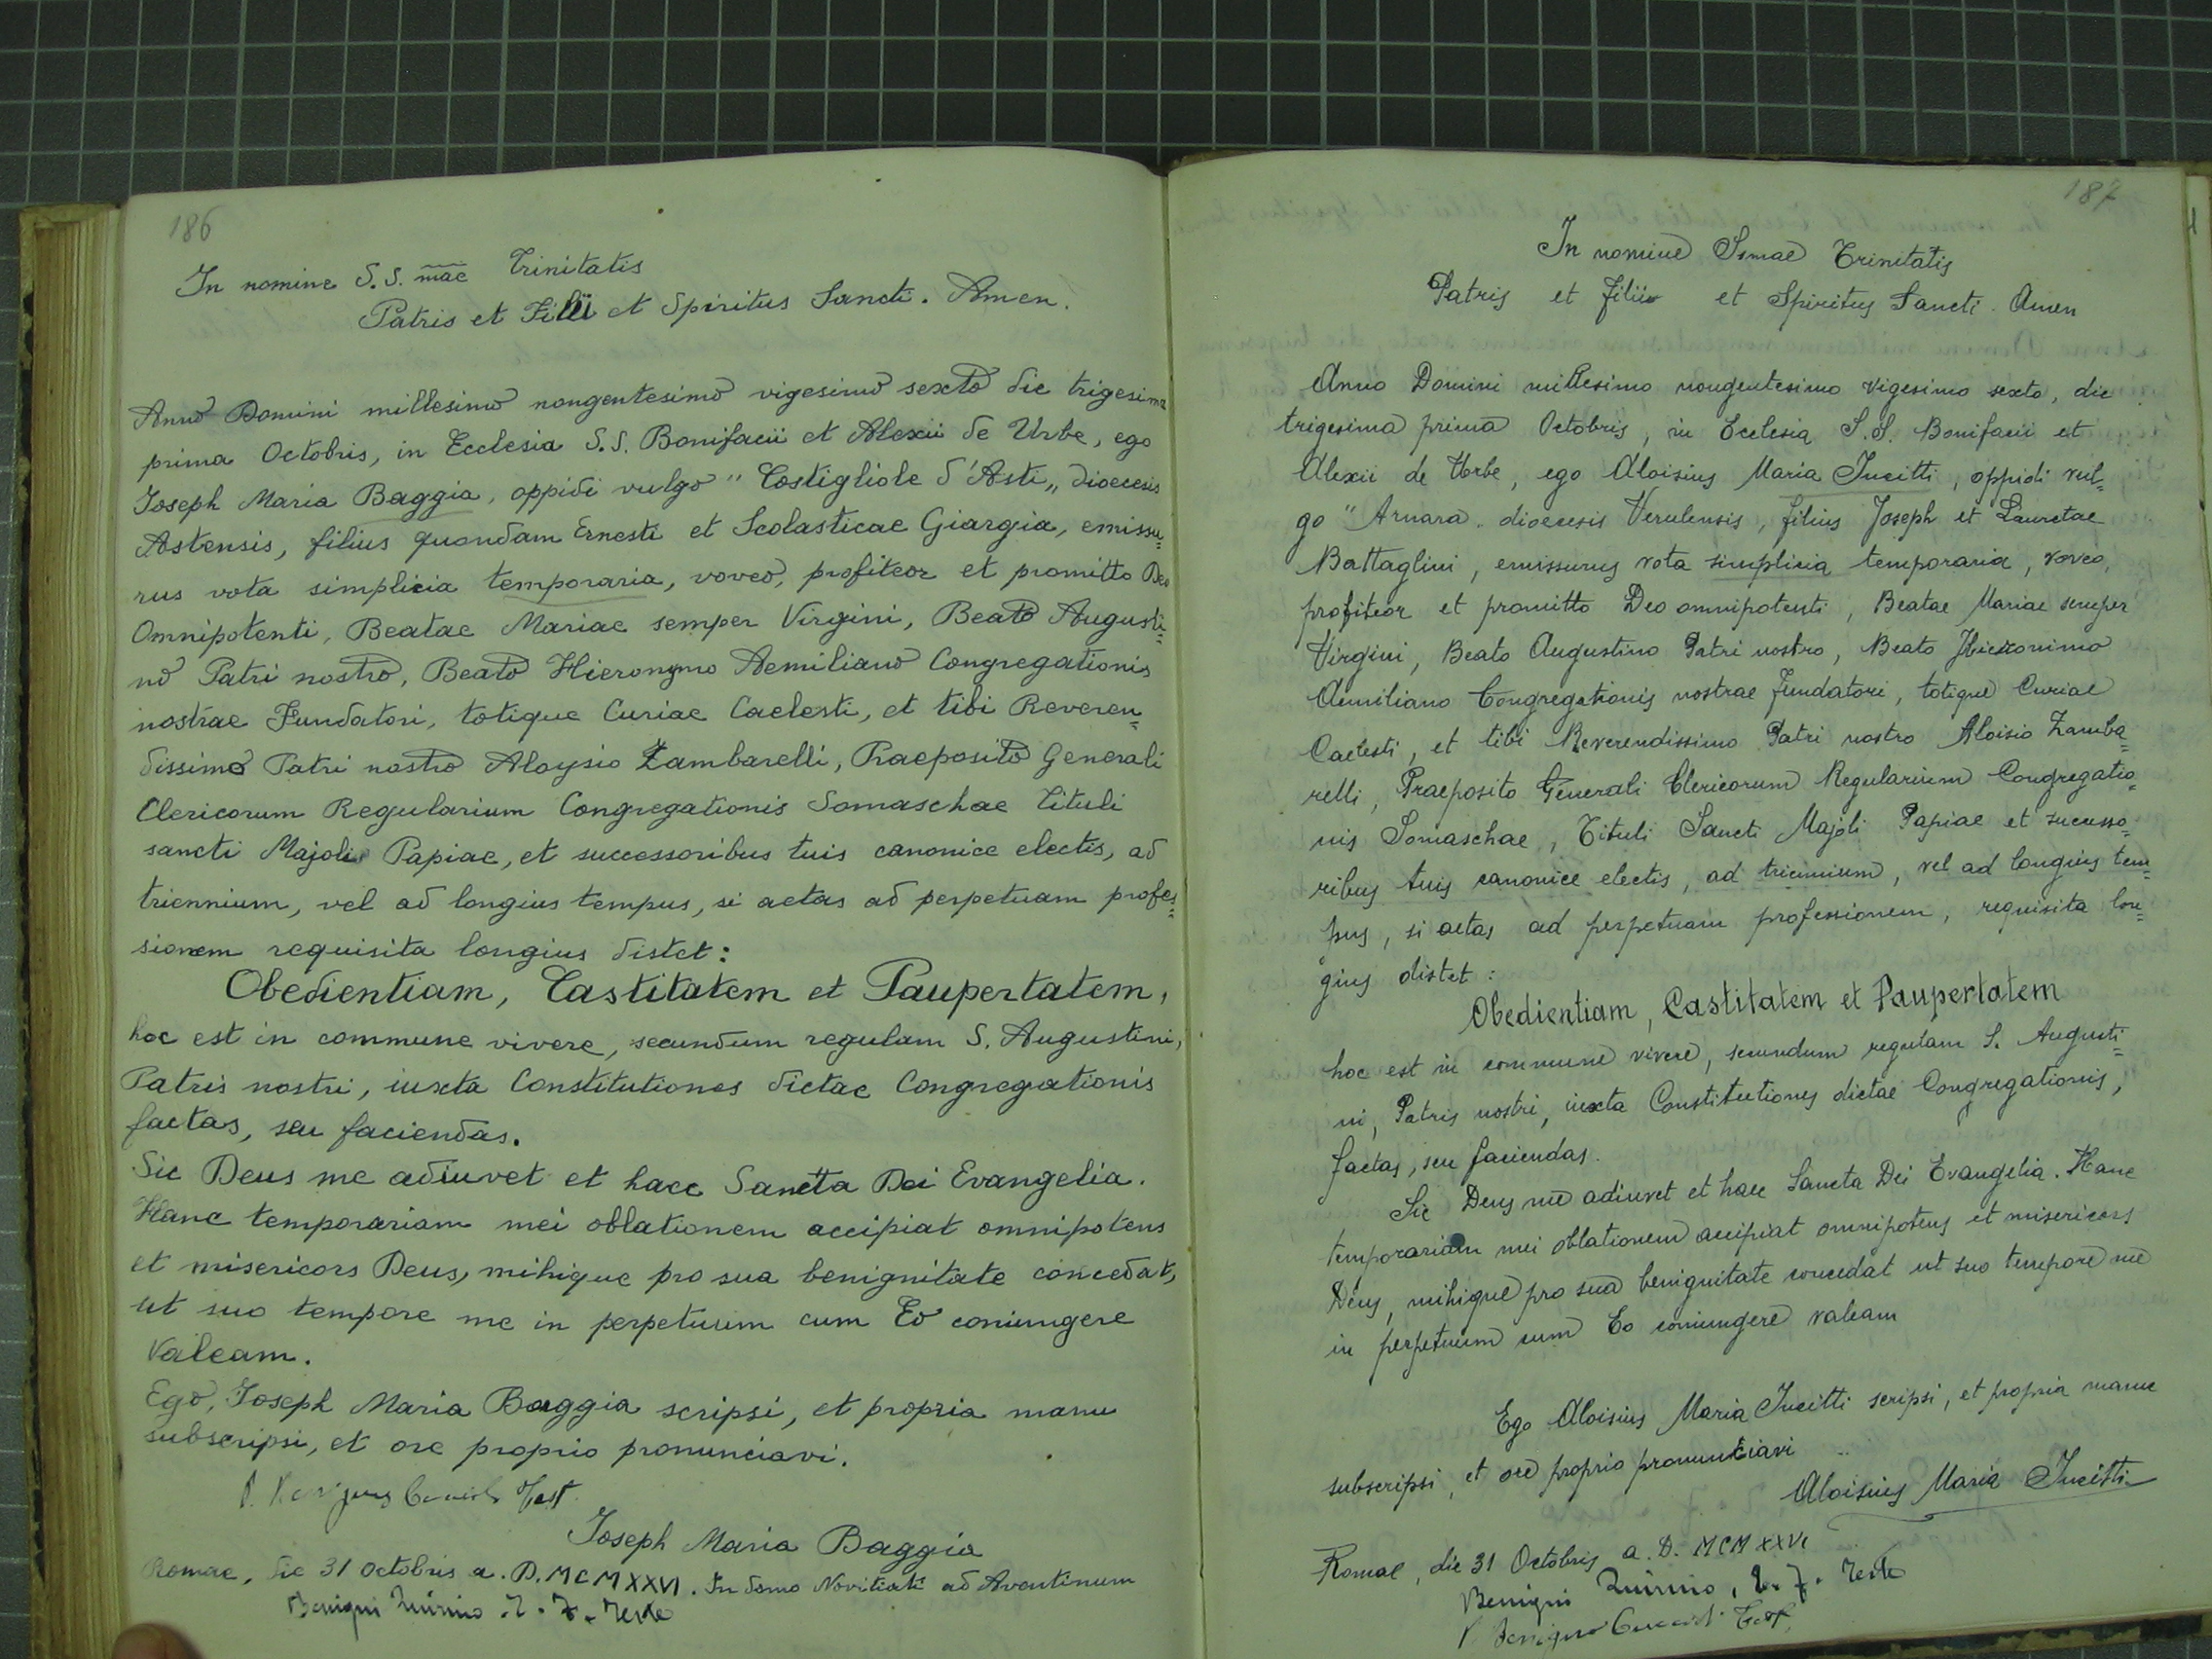 186
In nomine S.S. mae Trinitatis
Patris et Filii et Spiritus Sancti. Amen.
Anno Domini millesimo nongentesimo vigesimo sexto die trigesima
prima Octobris, in Ecclesia S.S. Bonifacii et Alexii de Urbe, ego
Joseph Maria Baggia, oppidi vulgo "Costigliole d'Asti„ dioecesis
Astensis, filius quondam Ernesti et Scolasticae Giargia, emissu=
rus vota simplicia temporaria, voveo, profiteor et promitto Deo
Omnipotenti, Beatae Mariae semper Virgini, Beato Augusti=
no Patri nostro, Beato Hieronymo Aemiliano Congregationis
nostrae Fundatori, totique Curiae Caelesti, et tibi Reveren=
dissimo Patri nostro Aloysio Zambarelli, Praeposito Generali
Clericorum Regularium Congregationis Somaschae tituli
sancti Majoli Papiae, et successoribus tuis canonice electis, ad
triennium, vel ad longius tempus, si aetas ad perpetuam profes=
sionem requisita longius distet:
Obedientiam, Castitatem et Paupertatem,
hoc est in commune vivere, secundum regulam S. Augustini,
Patris nostri, iuxta Constitutiones dictae Congregationis
factas, seu faciendas.
Sic Deus me adiuvet et haec Sancta Dei Evangelia.
Hanc temporariam mei oblationem accipiat omnipotens
et misericors Deus, mihique pro sua benignitate concedat,
ut suo tempore me in perpetuum cum Eo coniungere
valeam.
Ego, Joseph Maria Baggia scripsi, et propria manu
subscripsi, et ore proprio pronunciavi.
Test.
Joseph Maria Baggia
Romae, die 31 Octobris a. D. MCMXXVI. In domo Novitiati ad Aventinum
Benigni Teste
187
In nomine Ssmae Trinitatis
Patris et Filii et Spiritus Sancti. Amen
Anno Domini millesimo nongentesimo vigesimo sexto, die
trigesima prima Octobris, in Ecclesia S.S. Bonifacii et
Alexii de Urbe, ego Aloisius Maria Jucitti, oppidi vul=
go "Arnara„ dioecesis Verulensis, filius Joseph et Lauretae
Battaglini, emissurus vota simplicia temporaria, voveo,
profiteor et promitto Deo omnipotenti, Beatae Mariae semper
Virgini, Beato Augustino Patri nostro, Beato Hieronimo
Aemiliano Congregationis nostrae fundatori, totique Curiae
Caelesti, et tibi Reverendissimo Patri nostro Aloisio Zamba=
relli, Praeposito Generali Clericorum Regularium Congregatio=
nis Somaschae, Tituli Sancti Majoli Papiae et successo=
ribus tuis canonice electis, ad triennium, vel ad longius tem=
pus, si aetas ad perpetuam professionem, requisita lon=
gius distet:
Obedientiam, Castitatem et Paupertatem
hoc est in commune vivere, secundum regulam S. Augusti=
ni, Patris nostri, iuxta Constitutiones dictae Congregationis,
factas, seu faciendas.
Sic Deus me adiuvet et haec Sancta Dei Evangelia. Hanc
temporariam mei oblationem accipiat omnipotens et misericors
Deus, mihique pro sua benignitate concedat ut suo tempore me
in perpetuum cum Eo coniungere valeam
Ego Aloisius Maria Jucitti scripsi, et propria manu
subscripsi, et ore proprio pronunciavi
Aloisius Maria Jucitti
Romae, die 31 Octobris a. D. MCMXXVI
Benigni Teste
Test.